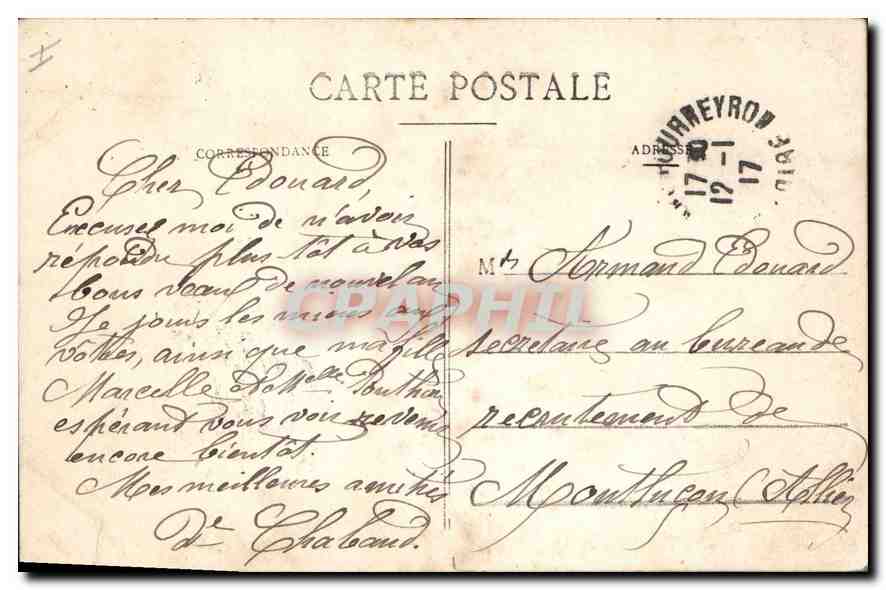 CARTE POSTALE
CORRESPONDANCE
ADRESSE
OURREYRON
17
12 -1
17
Cher Edouard,
Excusez moi de n'avoir
répondu plus tôt à vos
bons vœux de nouvel an
Je joins les miens aux
vôtres, ainsi que ma fille
Marcelle & Melle
espérant vous voir revenir
encore bientôt.
Mes meilleures amitiés
Dr Chabaud.
Mr Armand Edouard
secrétaire au bureau de
recrutement de
Montluçon (Allier)
CPAPHIL